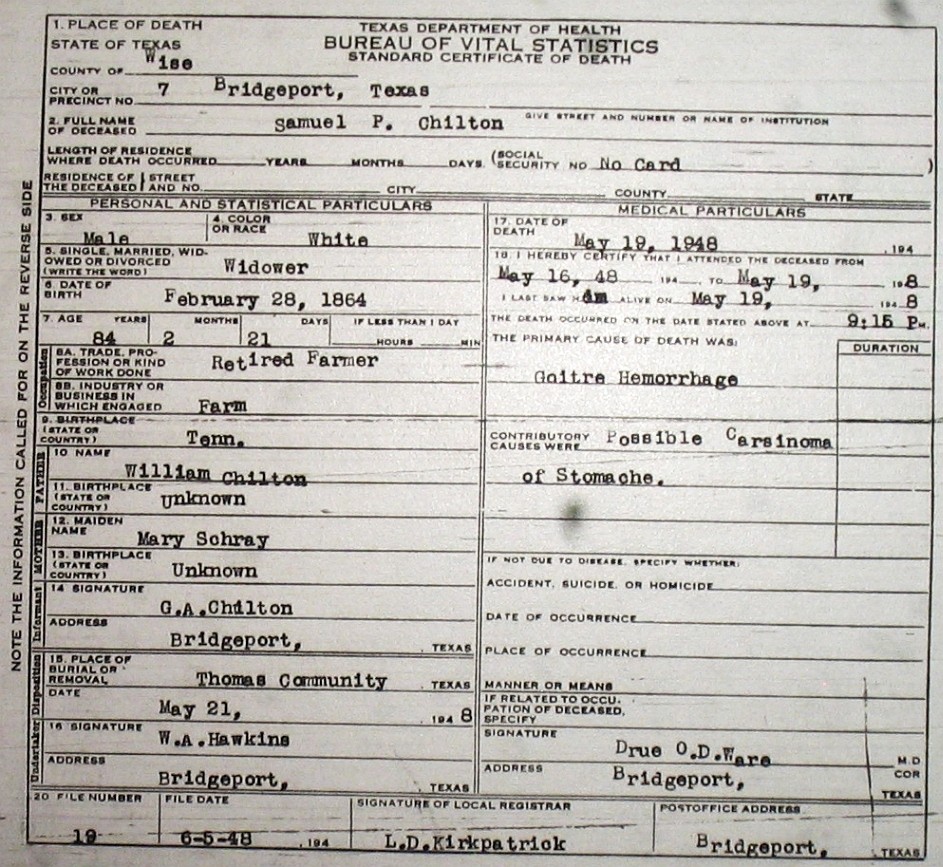 NOTE THE INFORMATION CALLED FOR ON THE REVERSE SIDE
TEXAS DEPARTMENT OF HEALTH
BUREAU OF VITAL STATISTICS
STANDARD CERTIFICATE OF DEATH
1. PLACE OF DEATH
STATE OF TEXAS
COUNTY OF Wise
CITY OR PRECINCT NO. 7 Bridgeport, Texas
GIVE STREET AND NUMBER OR NAME OF INSTITUTION
2. FULL NAME OF DECEASED Samuel P. Chilton
LENGTH OF RESIDENCE WHERE DEATH OCCURRED YEARS MONTHS DAYS (SOCIAL SECURITY NO No Card )
RESIDENCE OF THE DECEASED STREET AND NO. CITY COUNTY STATE
PERSONAL AND STATISTICAL PARTICULARS
3. SEX Male
4. COLOR OR RACE White
5. SINGLE, MARRIED, WIDOWED OR DIVORCED (WRITE THE WORD) Widower
6. DATE OF BIRTH February 28, 1864
7. AGE YEARS MONTHS DAYS IF LESS THAN 1 DAY
84 2 21 HOURS MIN
Occupation
8A. TRADE, PROFESSION OR KIND OF WORK DONE Retired Farmer
8B. INDUSTRY OR BUSINESS IN WHICH ENGAGED Farm
9. BIRTHPLACE (STATE OR COUNTRY) Tenn.
FATHER
10 NAME William Chilton
11. BIRTHPLACE (STATE OR COUNTRY) Unknown
MOTHER
12. MAIDEN NAME Mary Schray
13. BIRTHPLACE (STATE OR COUNTRY) Unknown
Informant
14 SIGNATURE G.A.Chilton
ADDRESS Bridgeport, TEXAS
Disposition
15. PLACE OF BURIAL OR REMOVAL Thomas Community TEXAS
DATE May 21, 194 8
Undertaker
16 SIGNATURE W.A.Hawkins
ADDRESS Bridgeport, TEXAS
MEDICAL PARTICULARS
17. DATE OF DEATH May 19, 1948 , 194
18. I HEREBY CERTIFY THAT I ATTENDED THE DECEASED FROM
May 16, 48 194 TO May 19, 194 8
I LAST SAW H im ALIVE ON May 19, 194 8
THE DEATH OCCURRED ON THE DATE STATED ABOVE AT 9:15 P M.
THE PRIMARY CAUSE OF DEATH WAS: DURATION
Goitre Hemorrhage
CONTRIBUTORY CAUSES WERE Possible Carsinoma
of Stomache.
IF NOT DUE TO DISEASE, SPECIFY WHETHER:
ACCIDENT, SUICIDE, OR HOMICIDE
DATE OF OCCURRENCE
PLACE OF OCCURRENCE
MANNER OR MEANS
IF RELATED TO OCCUPATION OF DECEASED, SPECIFY
SIGNATURE Drue O.D.Ware M.D
COR
ADDRESS Bridgeport, TEXAS
20 FILE NUMBER 19
FILE DATE 6-5-48 , 194
SIGNATURE OF LOCAL REGISTRAR L.D.Kirkpatrick
POSTOFFICE ADDRESS Bridgeport, TEXAS